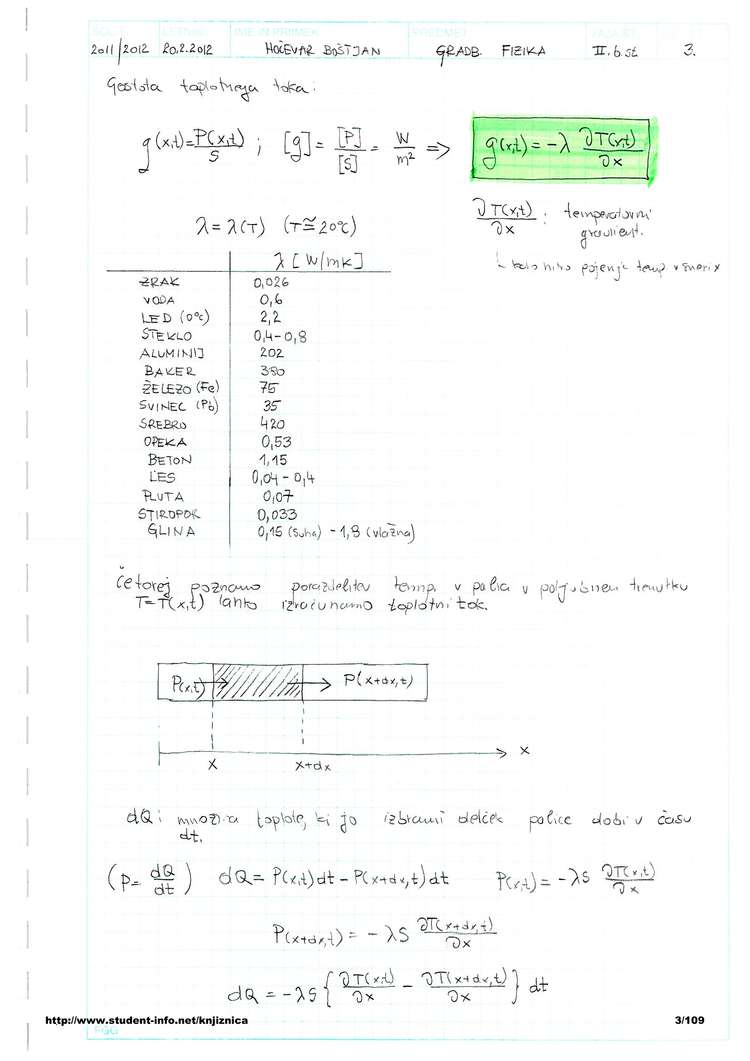 2011/2012 20.2.2012 HOČEVAR BOŠTJAN GRADB. FIZIKA II. b. st 3.
Gostota toplotnega toka:
g(x,t) = P(x,t)/S ; [g] = [P]/[S] = W/m² => g(x,t) = -λ ∂T(x,t)/∂x
λ = λ(T) (T≅20°C)
∂T(x,t)/∂x : temperaturni
gradient.
pojenje temp. v smeri x
λ [W/mK]
ZRAK 0,026
VODA 0,6
LED (0°C) 2,2
STEKLO 0,4-0,8
ALUMINIJ 202
BAKER 380
ŽELEZO (Fe) 75
SVINEC (Pb) 35
SREBRO 420
OPEKA 0,53
BETON 1,15
LES 0,04 - 0,4
PLUTA 0,07
STIROPOR 0,033
GLINA 0,15 (suha) - 1,8 (vlažna)
Če torej poznamo porazdelitev temp. v palici v poljubnem trenutku
T=T(x,t) lahko izračunamo toplotni tok.
P(x,t) P(x+dx,t)
x x+dx x
dQ: množina toplote, ki jo izbrani delček palice dobi v času
dt.
(P = dQ/dt) dQ = P(x,t)dt - P(x+dx,t)dt P(x,t) = -λS ∂T(x,t)/∂x
P(x+dx,t) = -λS ∂T(x+dx,t)/∂x
dQ = -λS { ∂T(x,t)/∂x - ∂T(x+dx,t)/∂x } dt
http://www.student-info.net/knjiznica 3/109
FGG